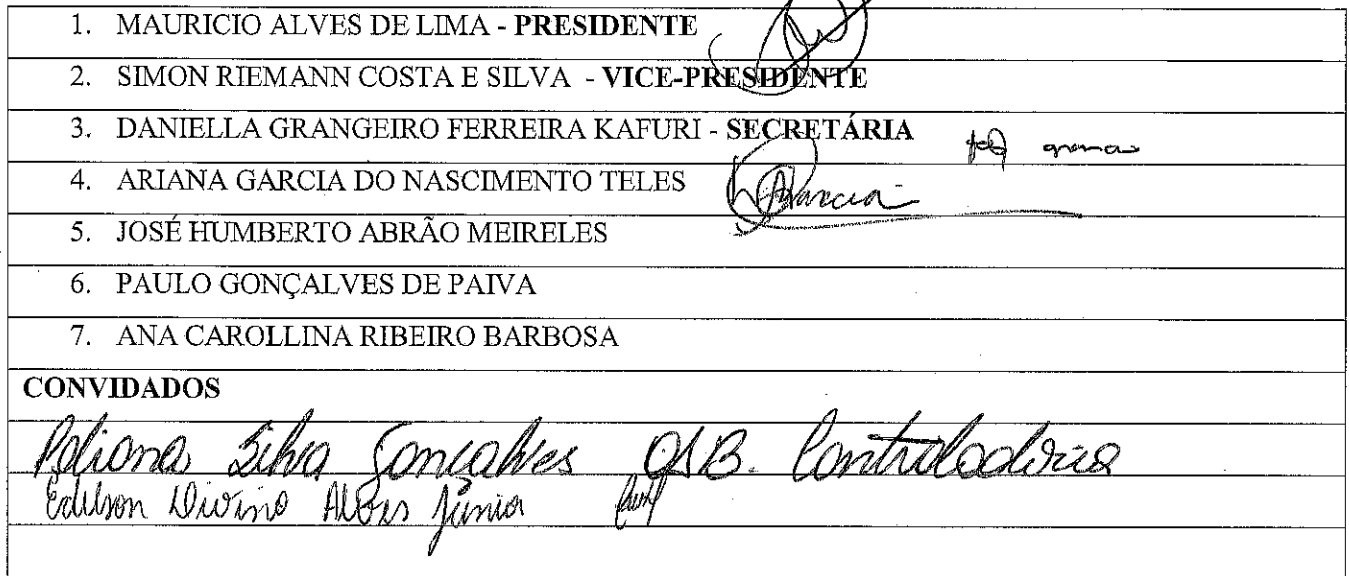 1. MAURICIO ALVES DE LIMA - PRESIDENTE
2. SIMON RIEMANN COSTA E SILVA - VICE-PRESIDENTE
3. DANIELLA GRANGEIRO FERREIRA KAFURI - SECRETÁRIA
4. ARIANA GARCIA DO NASCIMENTO TELES
5. JOSÉ HUMBERTO ABRÃO MEIRELES
6. PAULO GONÇALVES DE PAIVA
7. ANA CAROLLINA RIBEIRO BARBOSA
CONVIDADOS
Poliana Silva Gonçalves Controladoria
Edilson Divino Alves Júnior